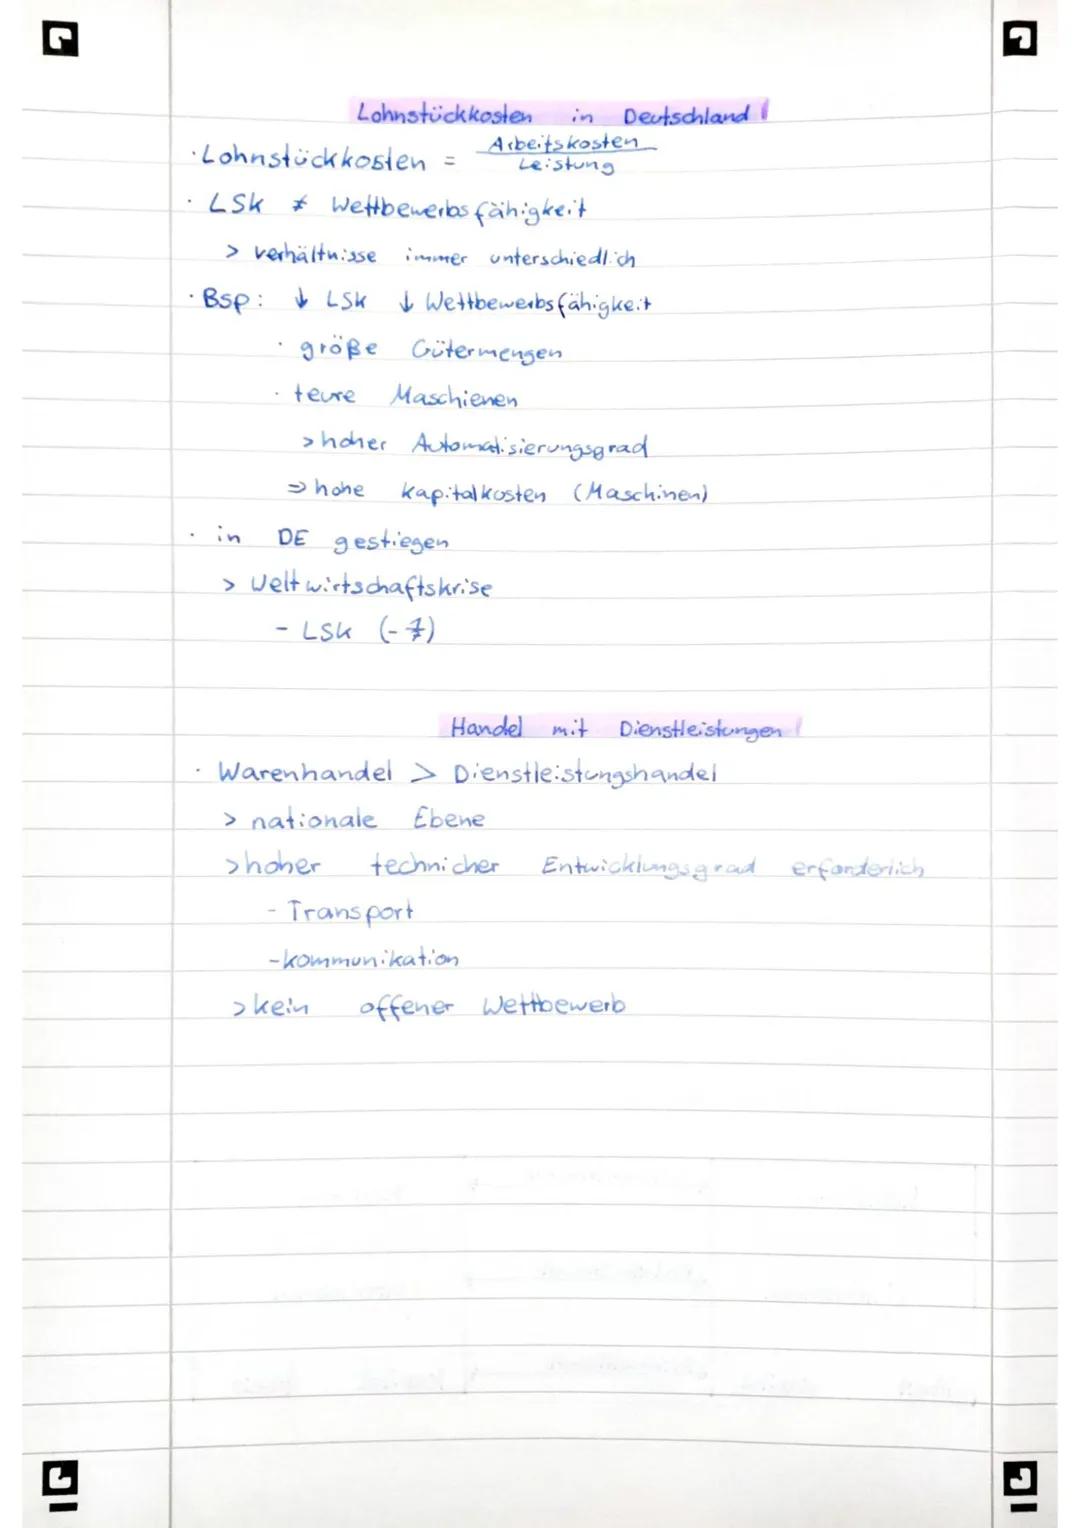 Lohnstückkosten in Deutschland!
· Lohnstückkosten = Arbeitskosten
Leistung
· LSK ≠ Wettbewerbsfähigkeit
> verhältnisse immer unterschiedlich
· Bsp: ↓ LSK ↓ Wettbewerbsfähigkeit
· größe Gütermengen
· teure Maschienen
> hoher Automatisierungsgrad
⇒ hohe Kapitalkosten (Maschinen)
· in DE gestiegen
> Weltwirtschaftskrise
- LSK (- )
Handel mit Dienstleistungen!
· Warenhandel > Dienstleistungshandel
> nationale Ebene
> hoher technicher Entwicklungsgrad erforderlich
- Transport
- kommunikation
> kein offener Wettbewerb